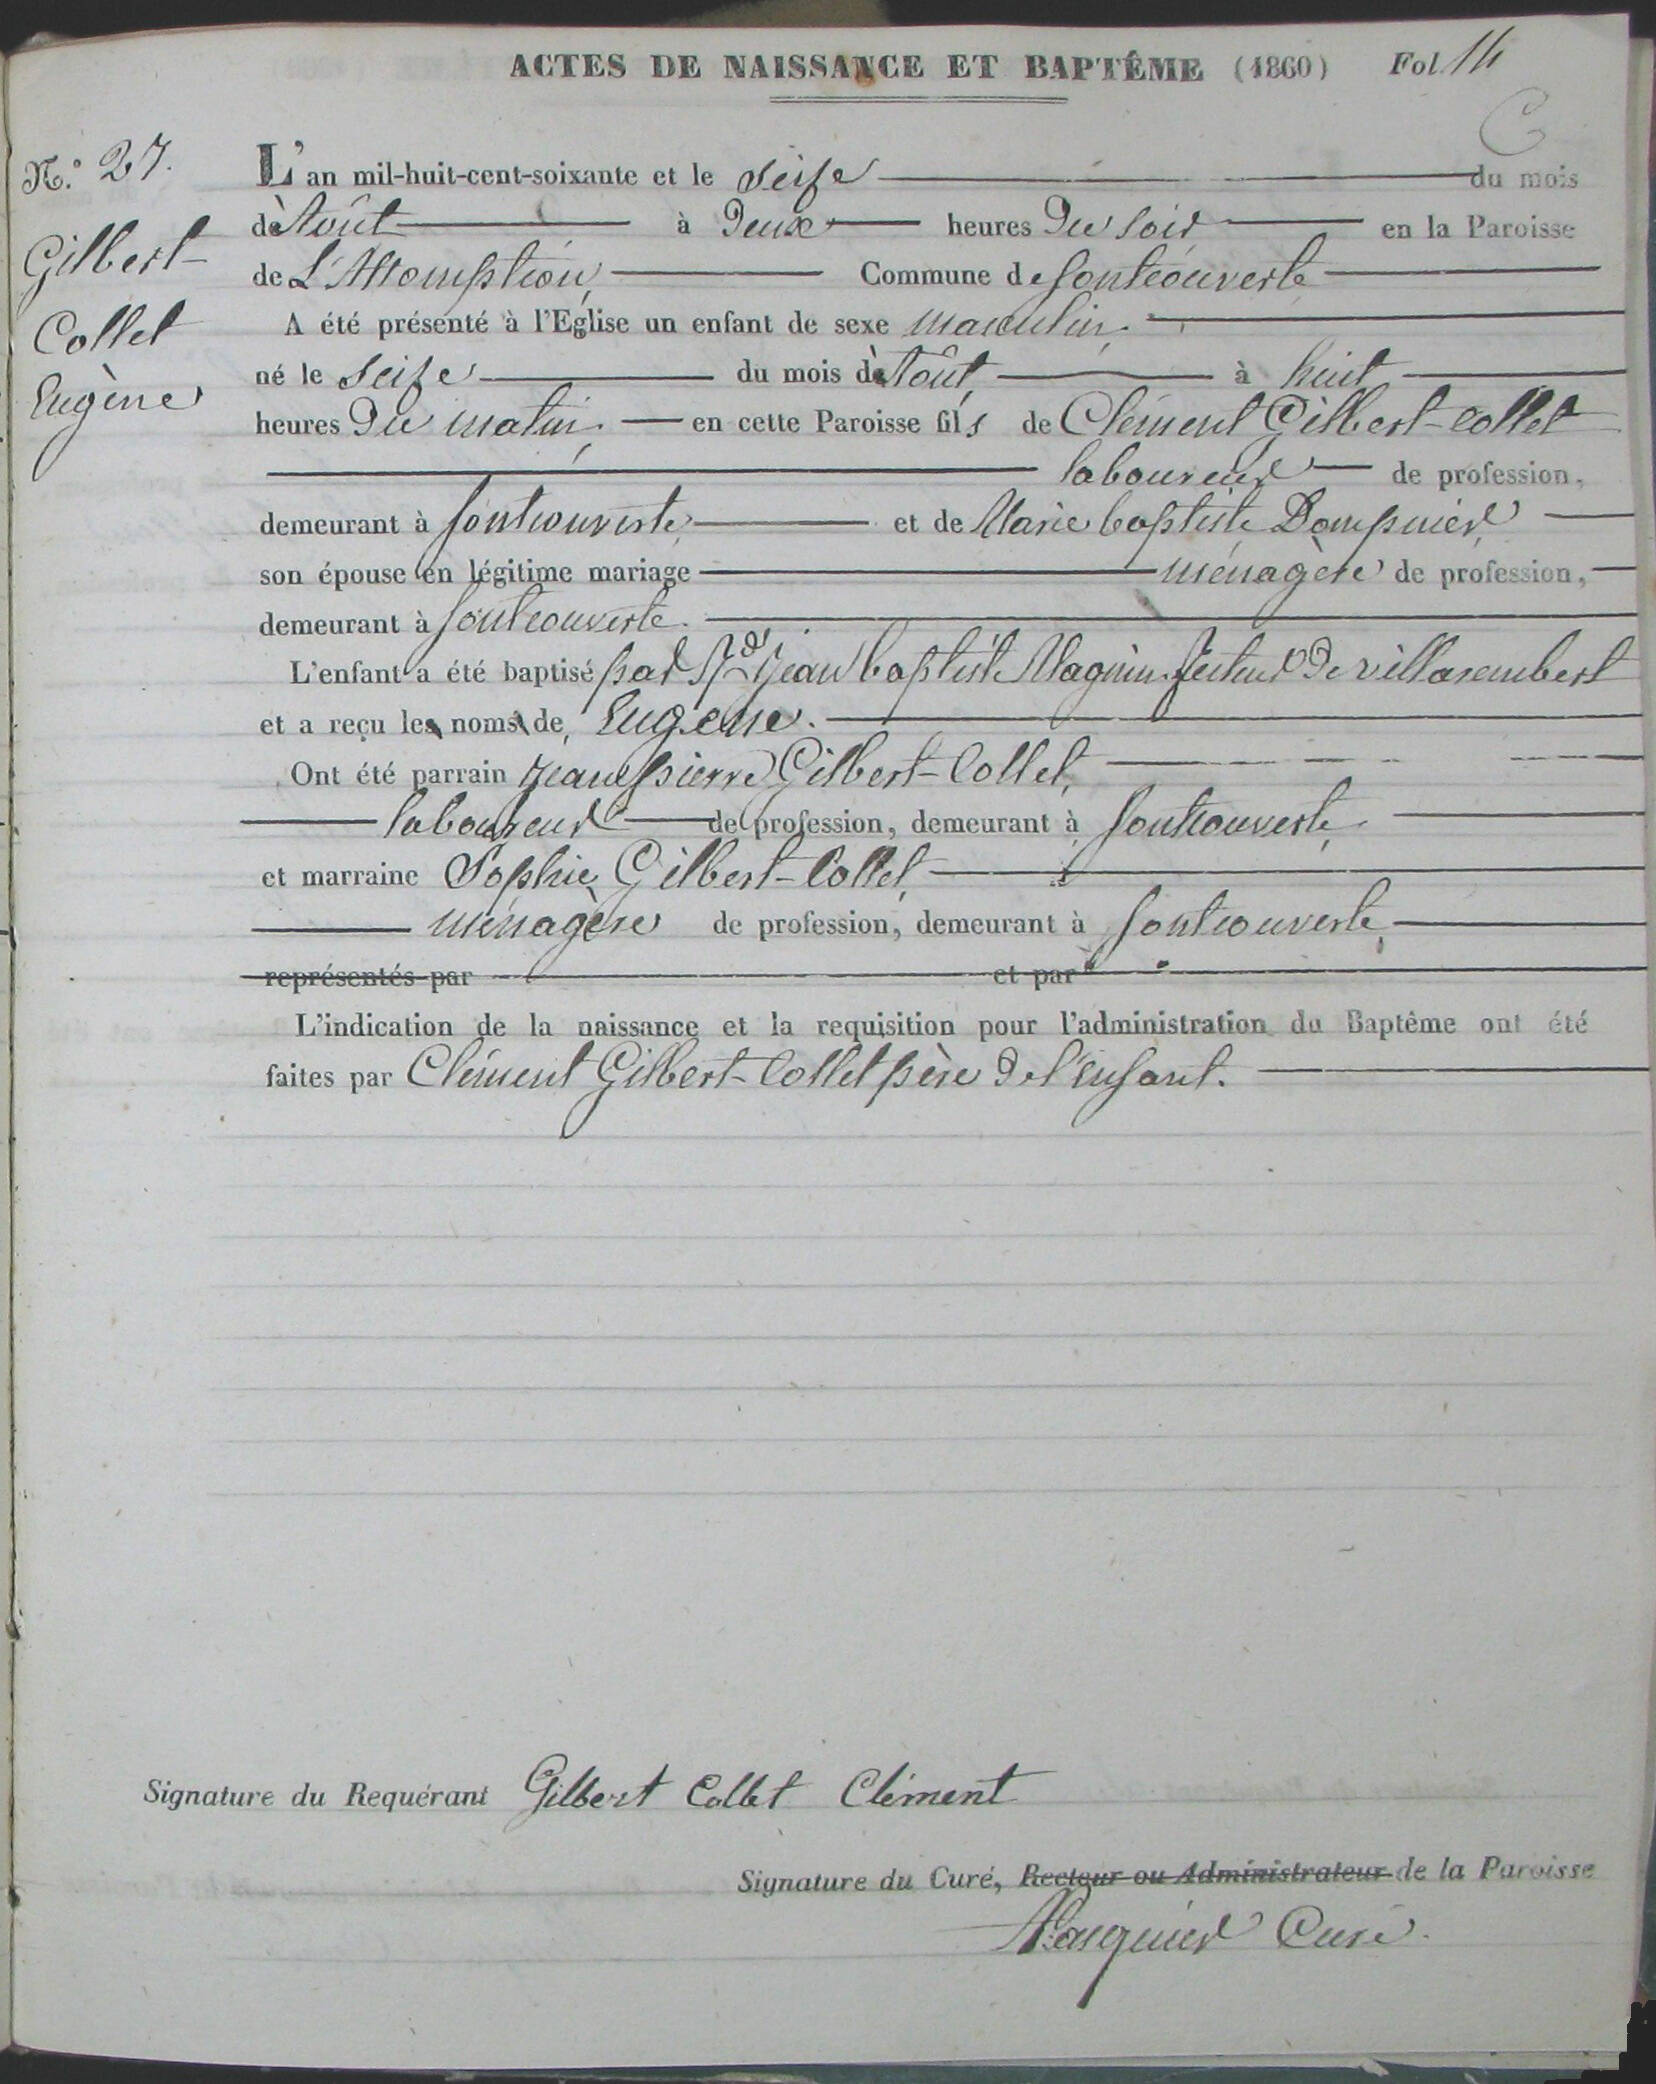 ACTES DE NAISSANCE ET BAPTÊME (1860) Fol. 14
C
N.° 27.
Gilbert-
Collet
Eugène
L'an mil-huit-cent-soixante et le seize du mois
d'Août à Deux heures Du soir en la Paroisse
de L'Assomption, Commune de fontcouverte
A été présenté à l'Eglise un enfant de sexe masculin.
né le seize du mois d'Août à huit
heures Du matin, en cette Paroisse fils de Clément Gilbert-Collet
laboureur de profession,
demeurant à fontcouverte, et de Marie baptiste Dompnier,
son épouse en légitime mariage ménagère de profession,
demeurant à fontcouverte.
L'enfant a été baptisé par Rd jean baptiste Magnin Recteur De villarembert
et a reçu les noms de, Eugene.
Ont été parrain jean pierre Gilbert-Collet,
laboureur de profession, demeurant à fontcouverte,
et marraine Sophie Gilbert-Collet,
ménagère de profession, demeurant à fontcouverte,
représentés par et par
L'indication de la naissance et la requisition pour l'administration du Baptême ont été
faites par Clément Gilbert-Collet père De l'enfant.
Signature du Requérant Gilbert Collet Clément
Signature du Curé, Recteur ou Administrateur de la Paroisse
Curé.